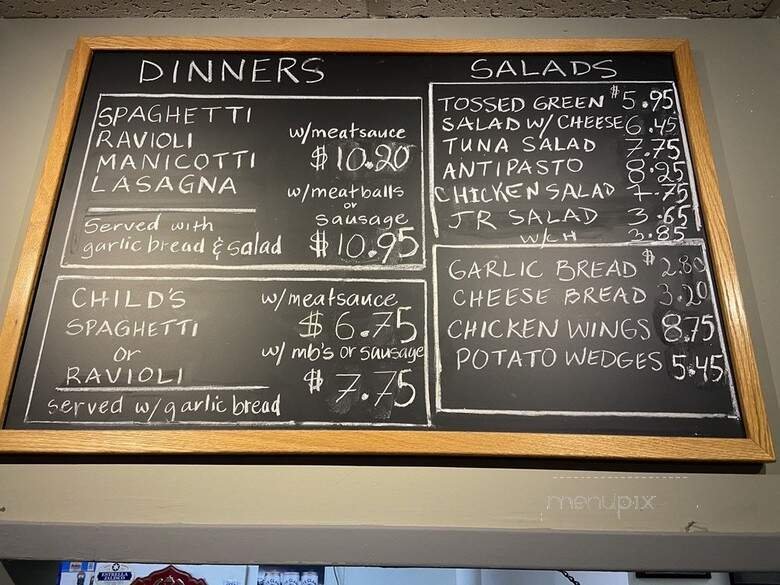 DINNERS
SPAGHETTI
RAVIOLI
MANICOTTI
LASAGNA
w/meatsauce
$10.20
w/meatballs
or
sausage
$10.95
Served with
garlic bread & salad
CHILD'S
SPAGHETTI
or
RAVIOLI
w/meatsauce
$6.75
w/ mb's or sausage
$7.75
served w/garlic bread
SALADS
TOSSED GREEN $5.95
SALAD W/ CHEESE 6.45
TUNA SALAD 7.75
ANTIPASTO 8.25
CHICKEN SALAD 7.75
JR SALAD 3.65
W/CH 3.85
GARLIC BREAD $2.80
CHEESE BREAD 3.20
CHICKEN WINGS 8.75
POTATO WEDGES 5.45
menupix
ESTRELLA
JALISCO